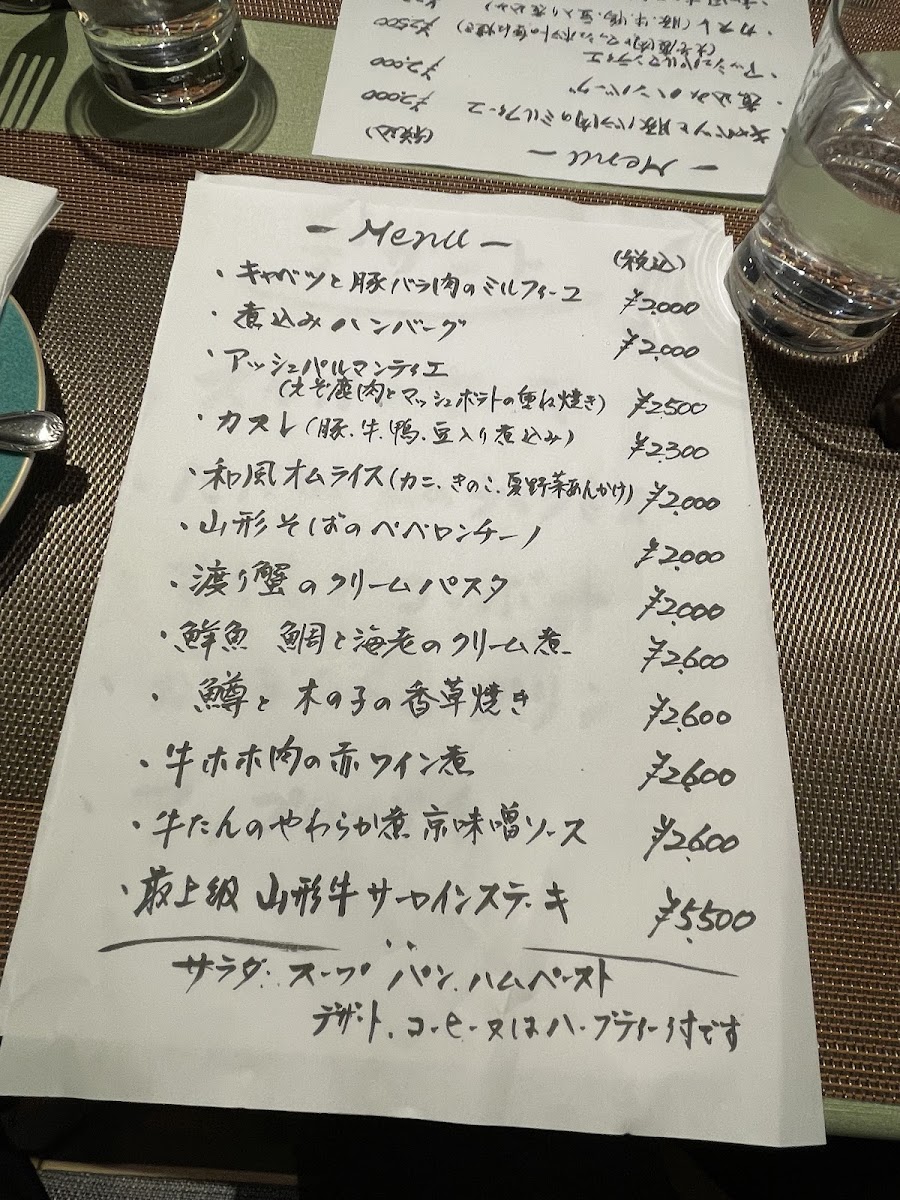 - Menu -
(税込)
・キャベツと豚バラ肉のミルフィーユ ¥2,000
・煮込みハンバーグ ¥2,000
・アッシュパルマンティエ
(えぞ鹿肉とマッシュポテトの重ね焼き) ¥2500
・カスレ(豚、牛、鴨、豆入り煮込み) ¥2,300
・和風オムライス(カニ、きのこ、夏野菜あんかけ) ¥2,000
・山形そばのペペロンチーノ ¥2,000
・渡り蟹のクリームパスタ ¥2,000
・鮮魚 鯛と海老のクリーム煮 ¥2,600
・鱒と木の子の香草焼き ¥2,600
・牛ホホ肉の赤ワイン煮 ¥2,600
・牛たんのやわらか煮 京味噌ソース ¥2,600
・最上級 山形牛サーロインステーキ ¥5,500
サラダ、スープ パン、ハムペースト
デザート、コーヒー又はハーブティー付です
- Menu -
(税込)
・キャベツと豚バラ肉のミルフィーユ ¥2,000
・煮込みハンバーグ ¥2,000
・アッシュパルマンティエ
¥2500
・カスレ(豚、牛、鴨、豆入り煮込み)